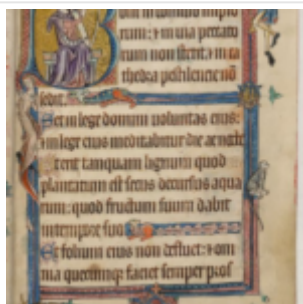 dom in consilio impio
rum: et in uia peccato
rum non stetit: et in ca
thedra pestilencie nō
sedit.
Set in lege domini uoluntas eius:
in lege eius meditabitur die ac nocte
tanquam lignum quod
plantatum est secus decursus aqua
rum: quod fructum suum dabit
in tempore suo
Et folium eius non defluet: et om
nia quecumque faciet semper pros